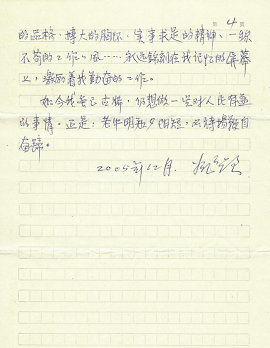 第 4 页
的品格、博大的胸怀、实事求是的精神、一丝
不苟的工作作风……永远铭刻在我记忆的屏幕
上，激励着我勤奋的工作。
如今我虽已古稀，仍想做一些对人民有益
的事情。还是：老牛明知夕阳短，不待扬鞭自
奋蹄。
2005年12月